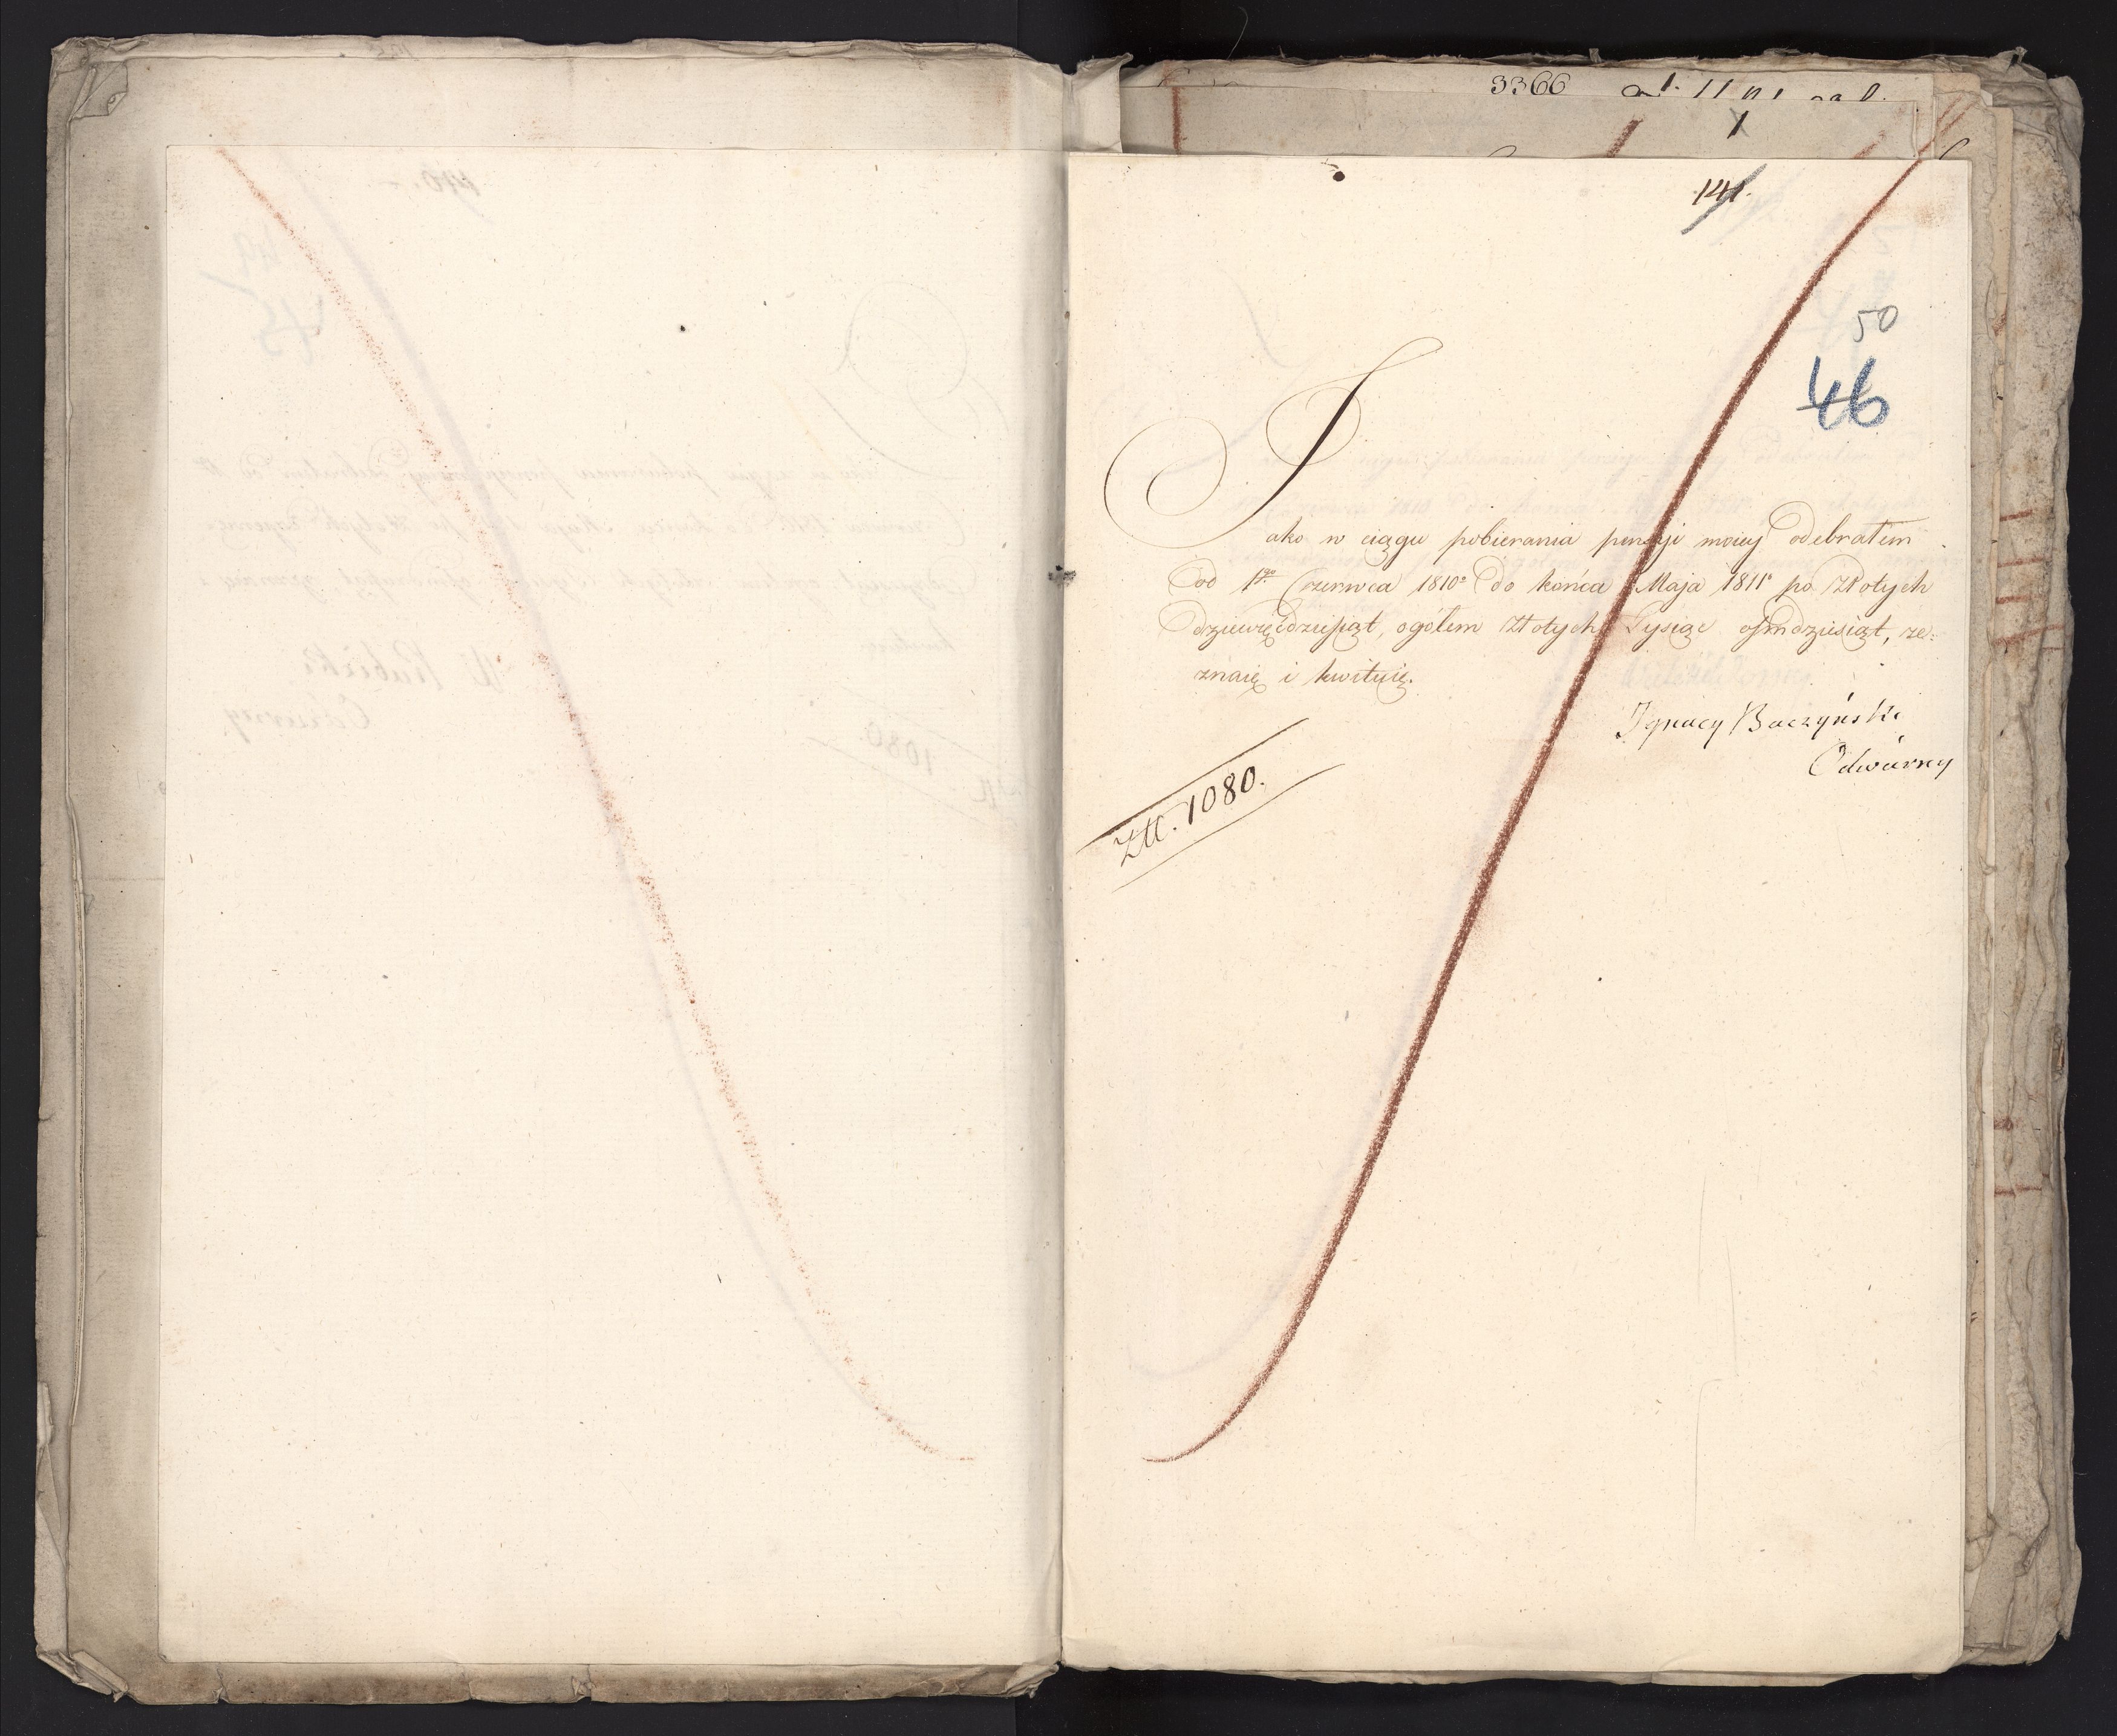 3366
141.
50
46
Jako w ciągu pobierania pensyi moiey odebrałem
od 1go Czerwca 1810o do końca Maja 1811o po Złotych
dziewięćdziesiąt, ogółem Złotych Tysiąc ośmdziesiąt, ze=
znaię i kwituię.
Ignacy Baczyński
Odwierny
Złł. 1080.